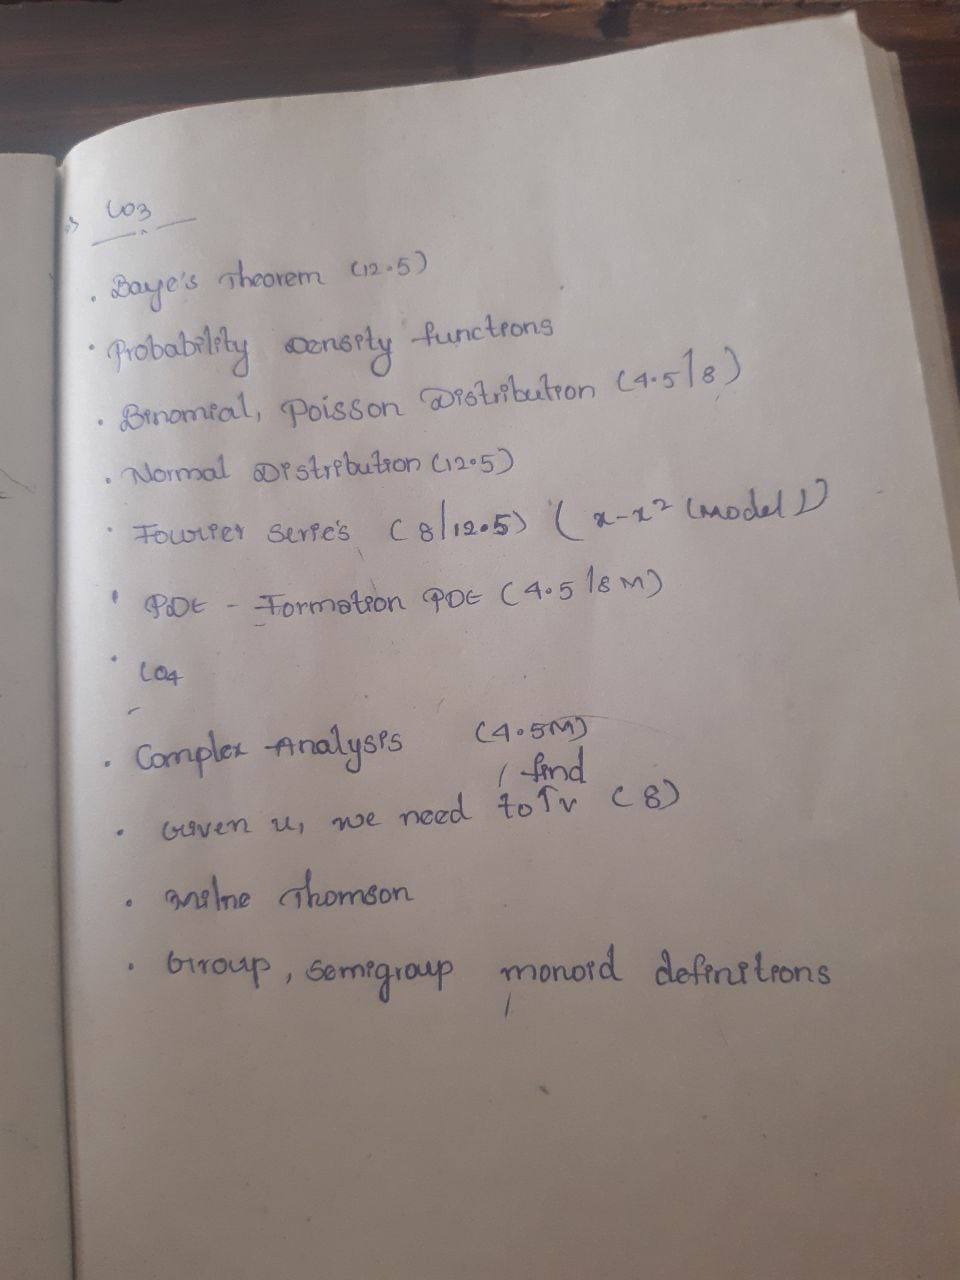 CO3
. Baye's Theorem (12.5)
. Probability Density functions
. Binomial, Poisson Distribution (4.5/8)
. Normal Distribution (12.5)
. Fourier Serie's (8/12.5) (x-x² (model))
. PDE - Formation PDE (4.5/8M)
. CO4
. Complex Analysis (4.5M)
find
. Given u, we need to v (8)
. Milne Thomson
. Group, Semigroup, monoid definitions